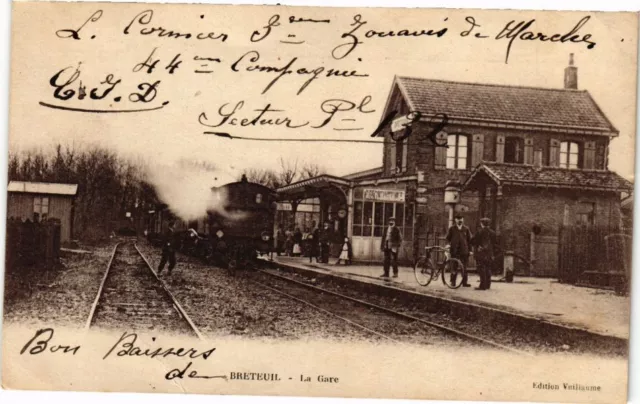 L. Cormier 3eme Zouaves de marche
44 eme Compagnie
C. I. D
Secteur Pl 132
Bon Baisers
de
BRETEUIL - La Gare
Edition Vuillaume